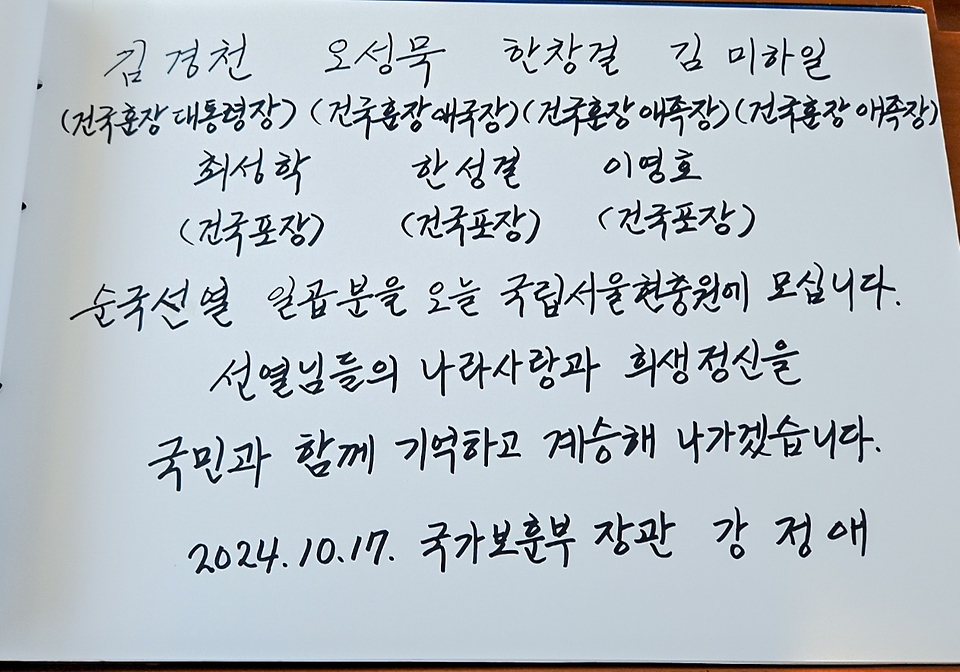 김경천 오성묵 한창걸 김 미하일
(건국훈장 대통령장) (건국훈장 애국장) (건국훈장 애족장) (건국훈장 애족장)
최성학 한성걸 이영호
(건국포장) (건국포장) (건국포장)
순국선열 일곱분을 오늘 국립서울현충원에 모십니다.
선열님들의 나라사랑과 희생정신을
국민과 함께 기억하고 계승해 나가겠습니다.
2024.10.17. 국가보훈부 장관 강정애